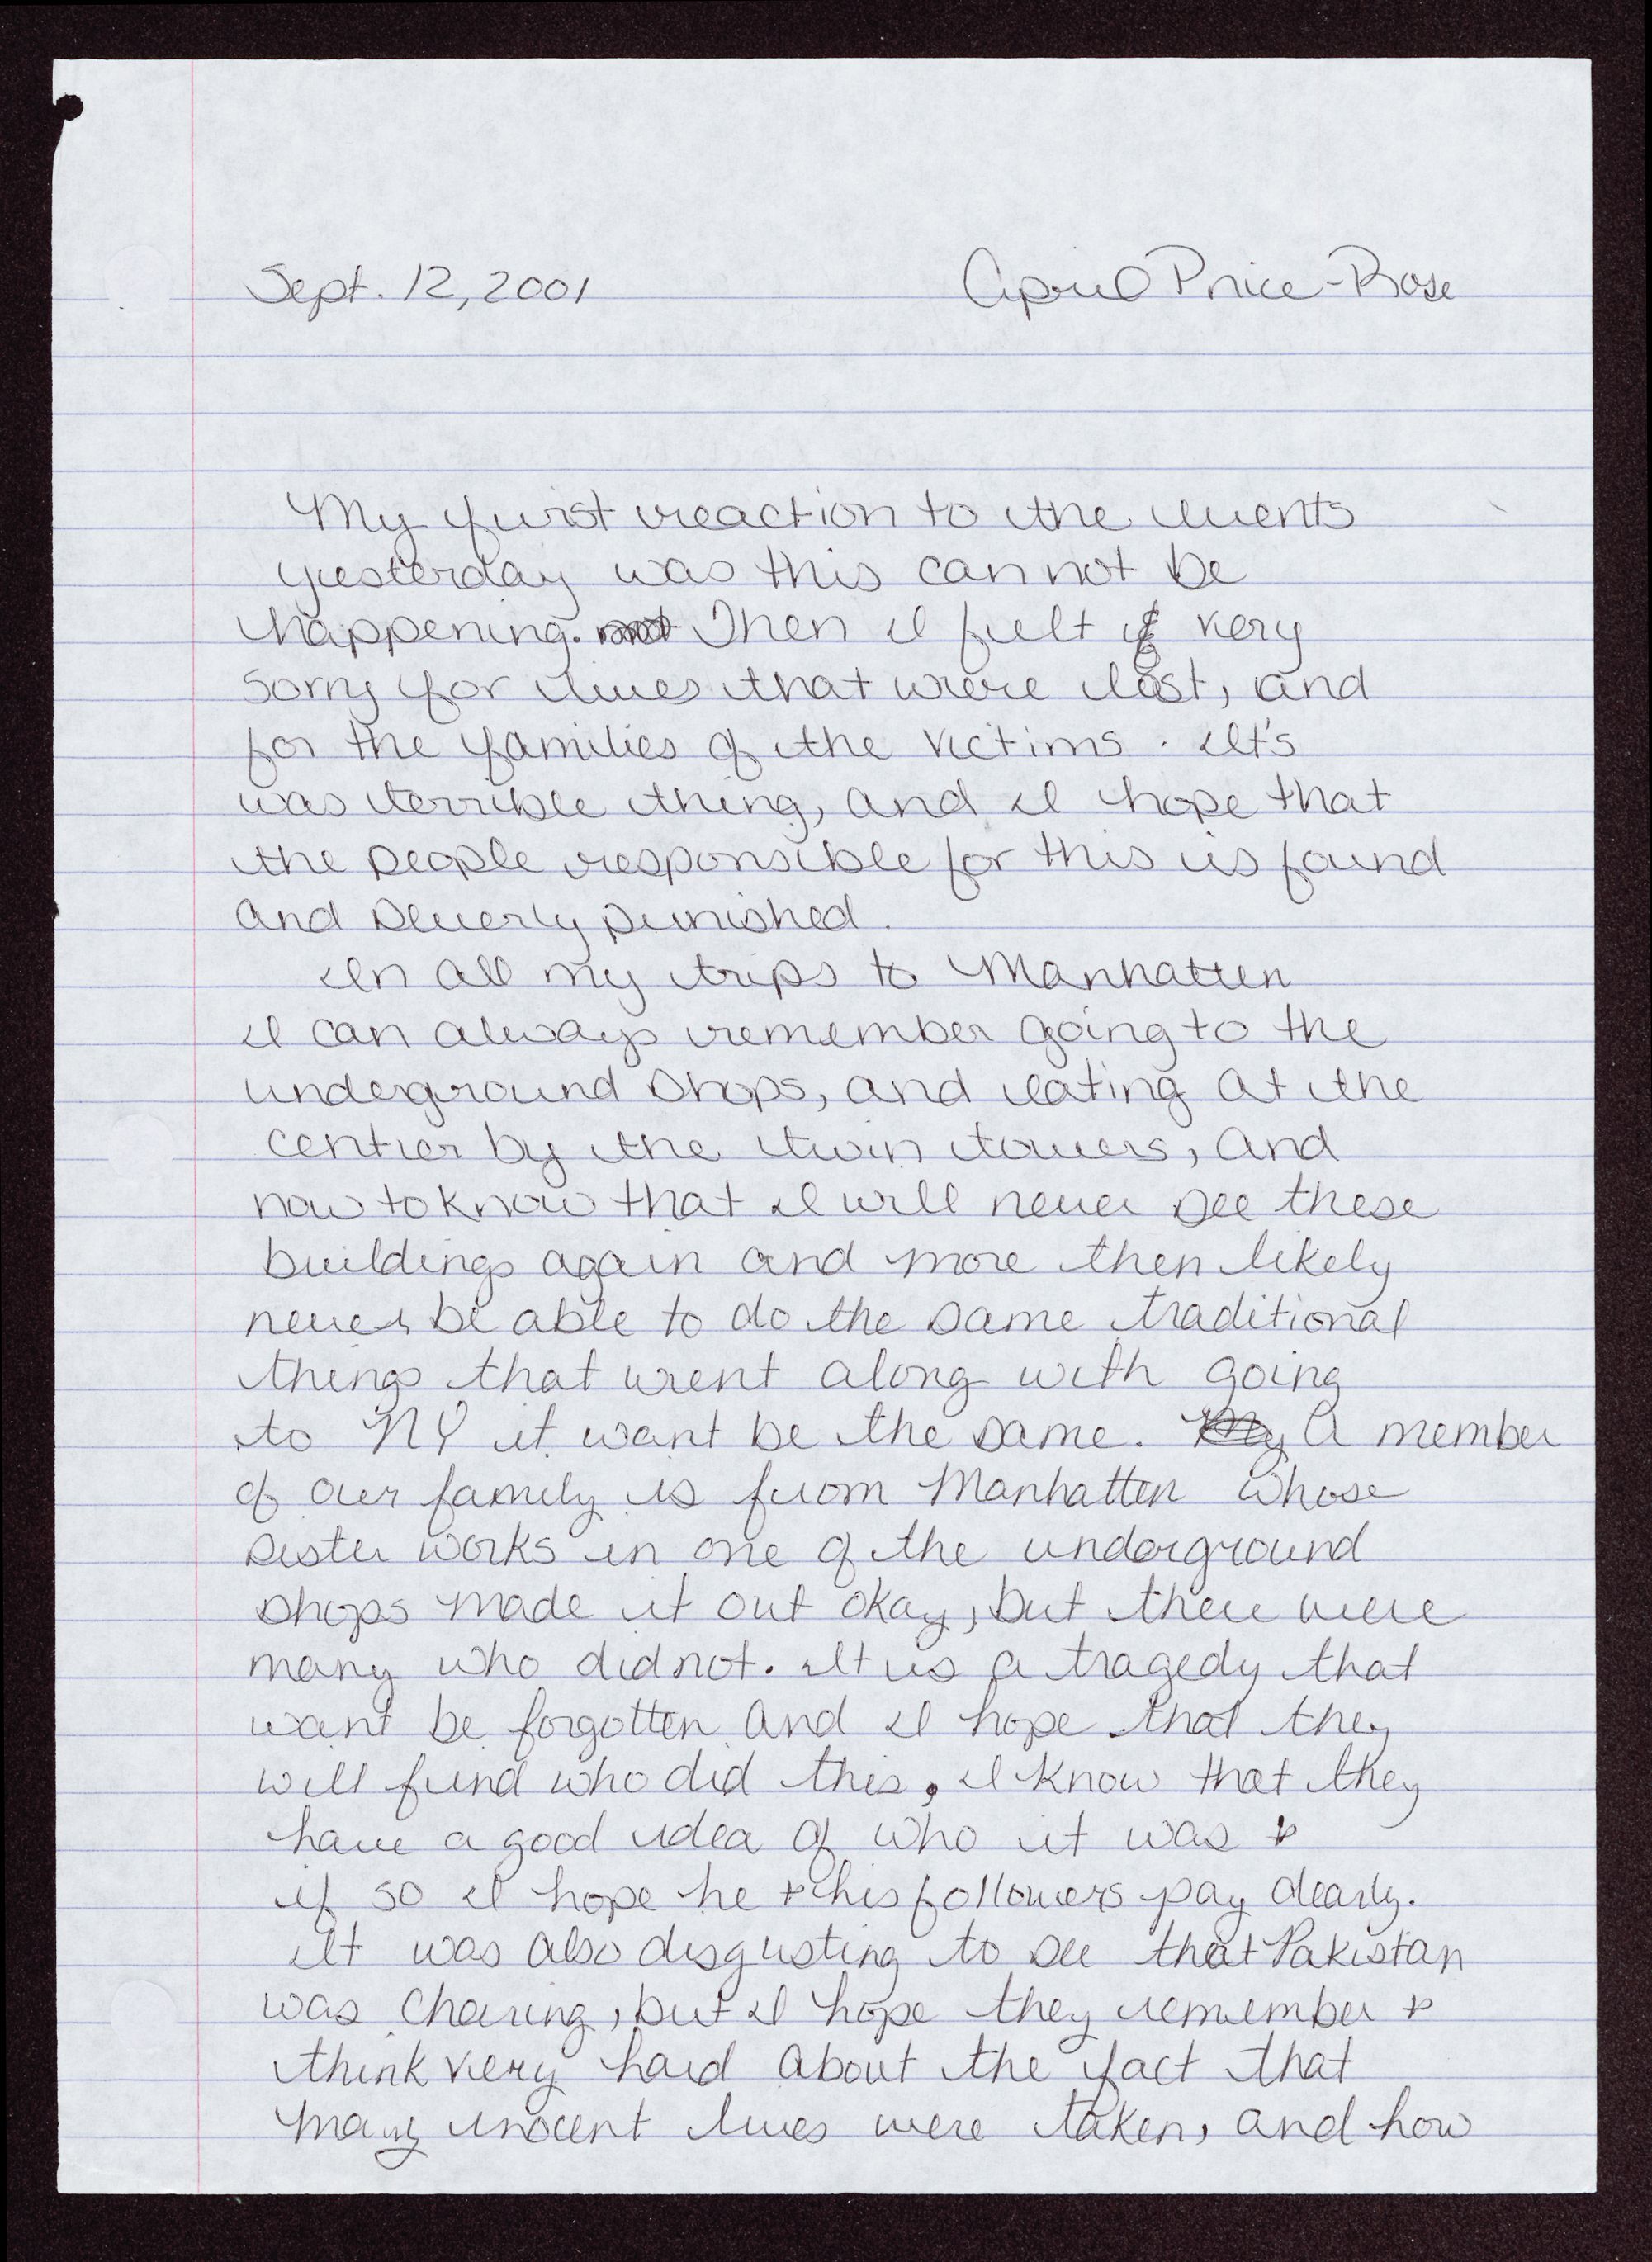 Sept. 12, 2001 April Price-Rose
My first reaction to the events
yesterday was this cannot be
happening. Then I felt very
sorry for lives that were lost, and
for the families of the victims. It's
was terrible thing, and I hope that
the people responsible for this is found
and severly punished.
In all my trips to Manhatten
I can always remember going to the
underground shops, and eating at the
center by the twin towers, and
now to know that I will never see these
buildings again and more then likely
never be able to do the same traditional
things that went along with going
to NY it want be the same. A member
of our family is from Manhatten whose
sister works in one of the underground
shops made it out okay, but there were
many who did not. It is a tragedy that
want be forgotten and I hope that they
will find who did this, I know that they
have a good idea of who it was +
if so I hope he + his followers pay dearly.
It was also disgusting to see that Pakistan
was chearing, but I hope they remember +
think very hard about the fact that
many inocent lives were taken, and how